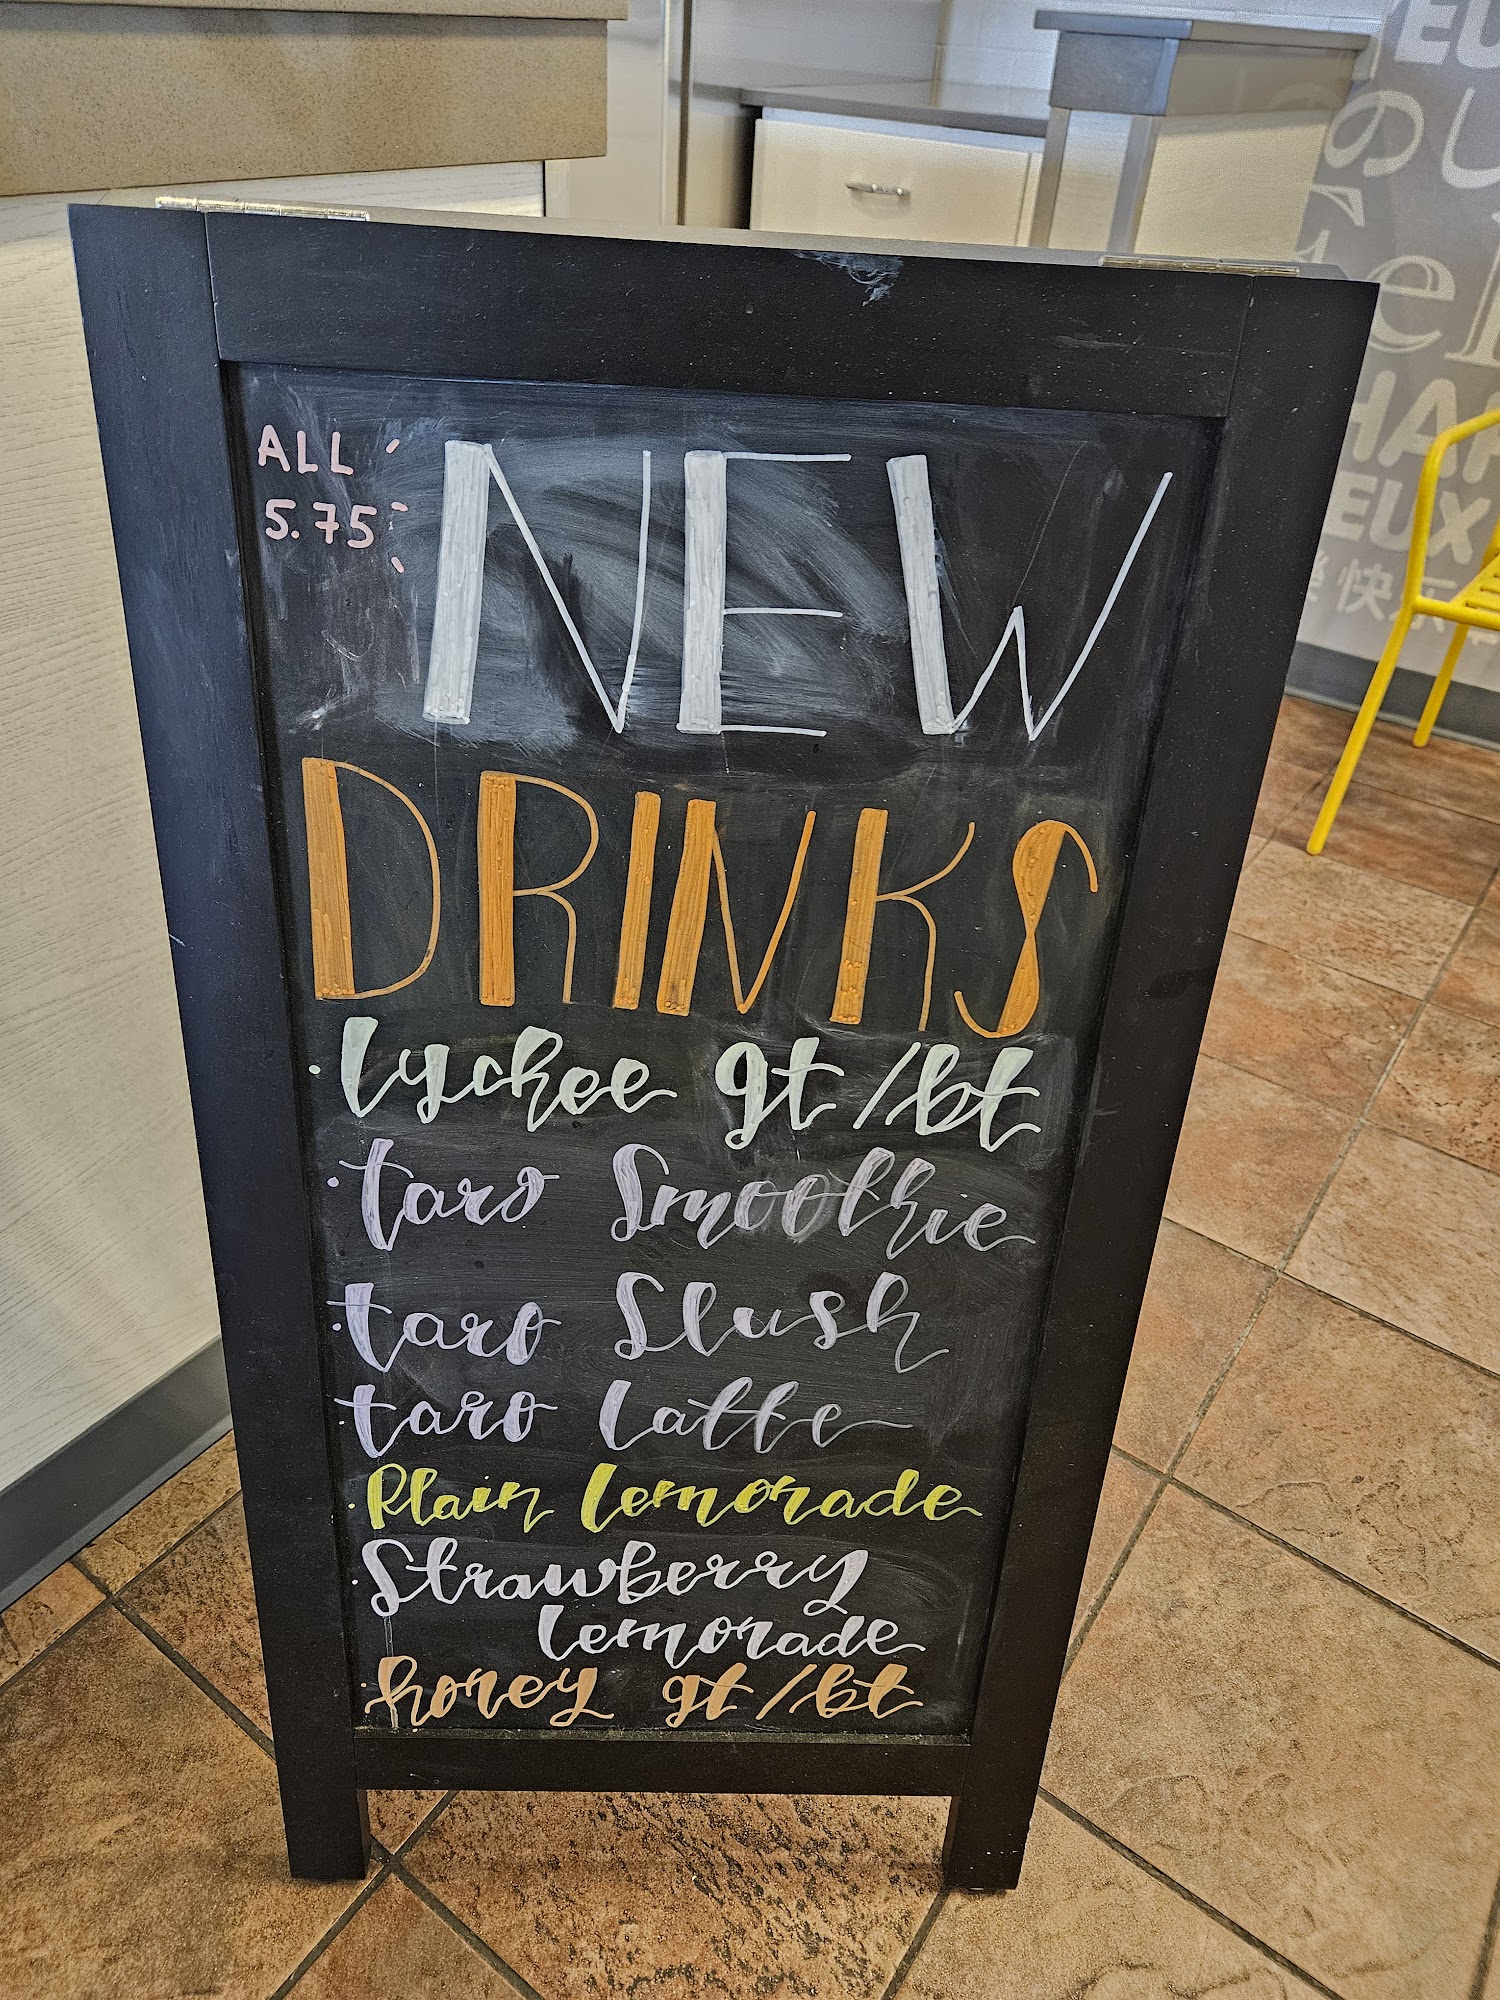 ALL
5.75
NEW
DRINKS
· lychee gt/bt
· taro Smoothie
· taro Slush
· taro latte
· Plain lemonade
· Strawberry
lemonade
· honey gt/bt
EUX
快乐